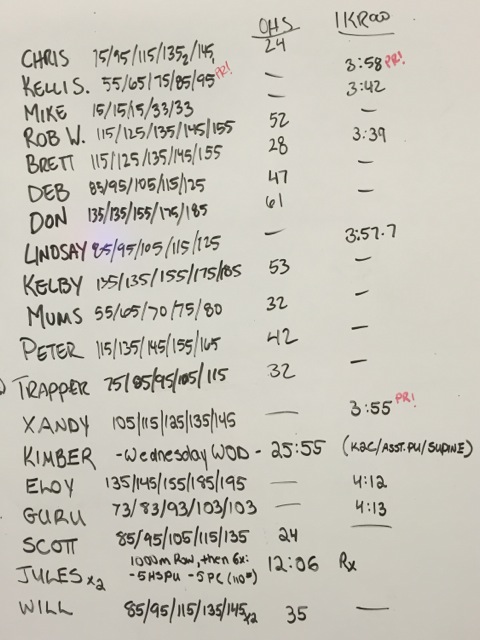 OHS 1KROW
CHRIS 75/95/115/135₂/145₁ 24 3:58 PR!
KELLI S. 55/65/75/85/95 PR! — 3:42
MIKE 15/15/15/33/33 — —
ROB W. 115/125/135/145/155 52 3:39
BRETT 115/125/135/145/155 28 —
DEB 85/95/105/115/125 47 —
DON 135/135/155/175/185 61
LINDSAY 85/95/105/115/125 — 3:57.7
KELBY 135/135/155/175/185 53 —
MUMS 55/65/70/75/80 32 —
PETER 115/135/145/155/165 42 —
TRAPPER 75/85/95/105/115 32 —
XANDY 105/115/125/135/145 — 3:55 PR!
KIMBER -Wednesday WOD- 25:55 (K2C/ASST.PU/SUPINE)
ELOY 135/145/155/185/195 — 4:12
GURU 73/83/93/103/103 — 4:13
SCOTT 85/95/105/115/135 24 —
JULES x2 1000m Row, then 6x: 12:06 Rx
-5HSPU -5PC (110#)
WILL 85/95/115/135/145x2 35 —